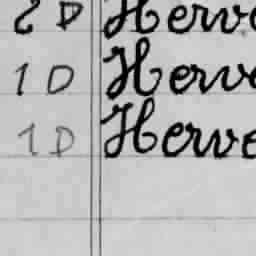 2 D Herve
1 D Herve
1 D Herve